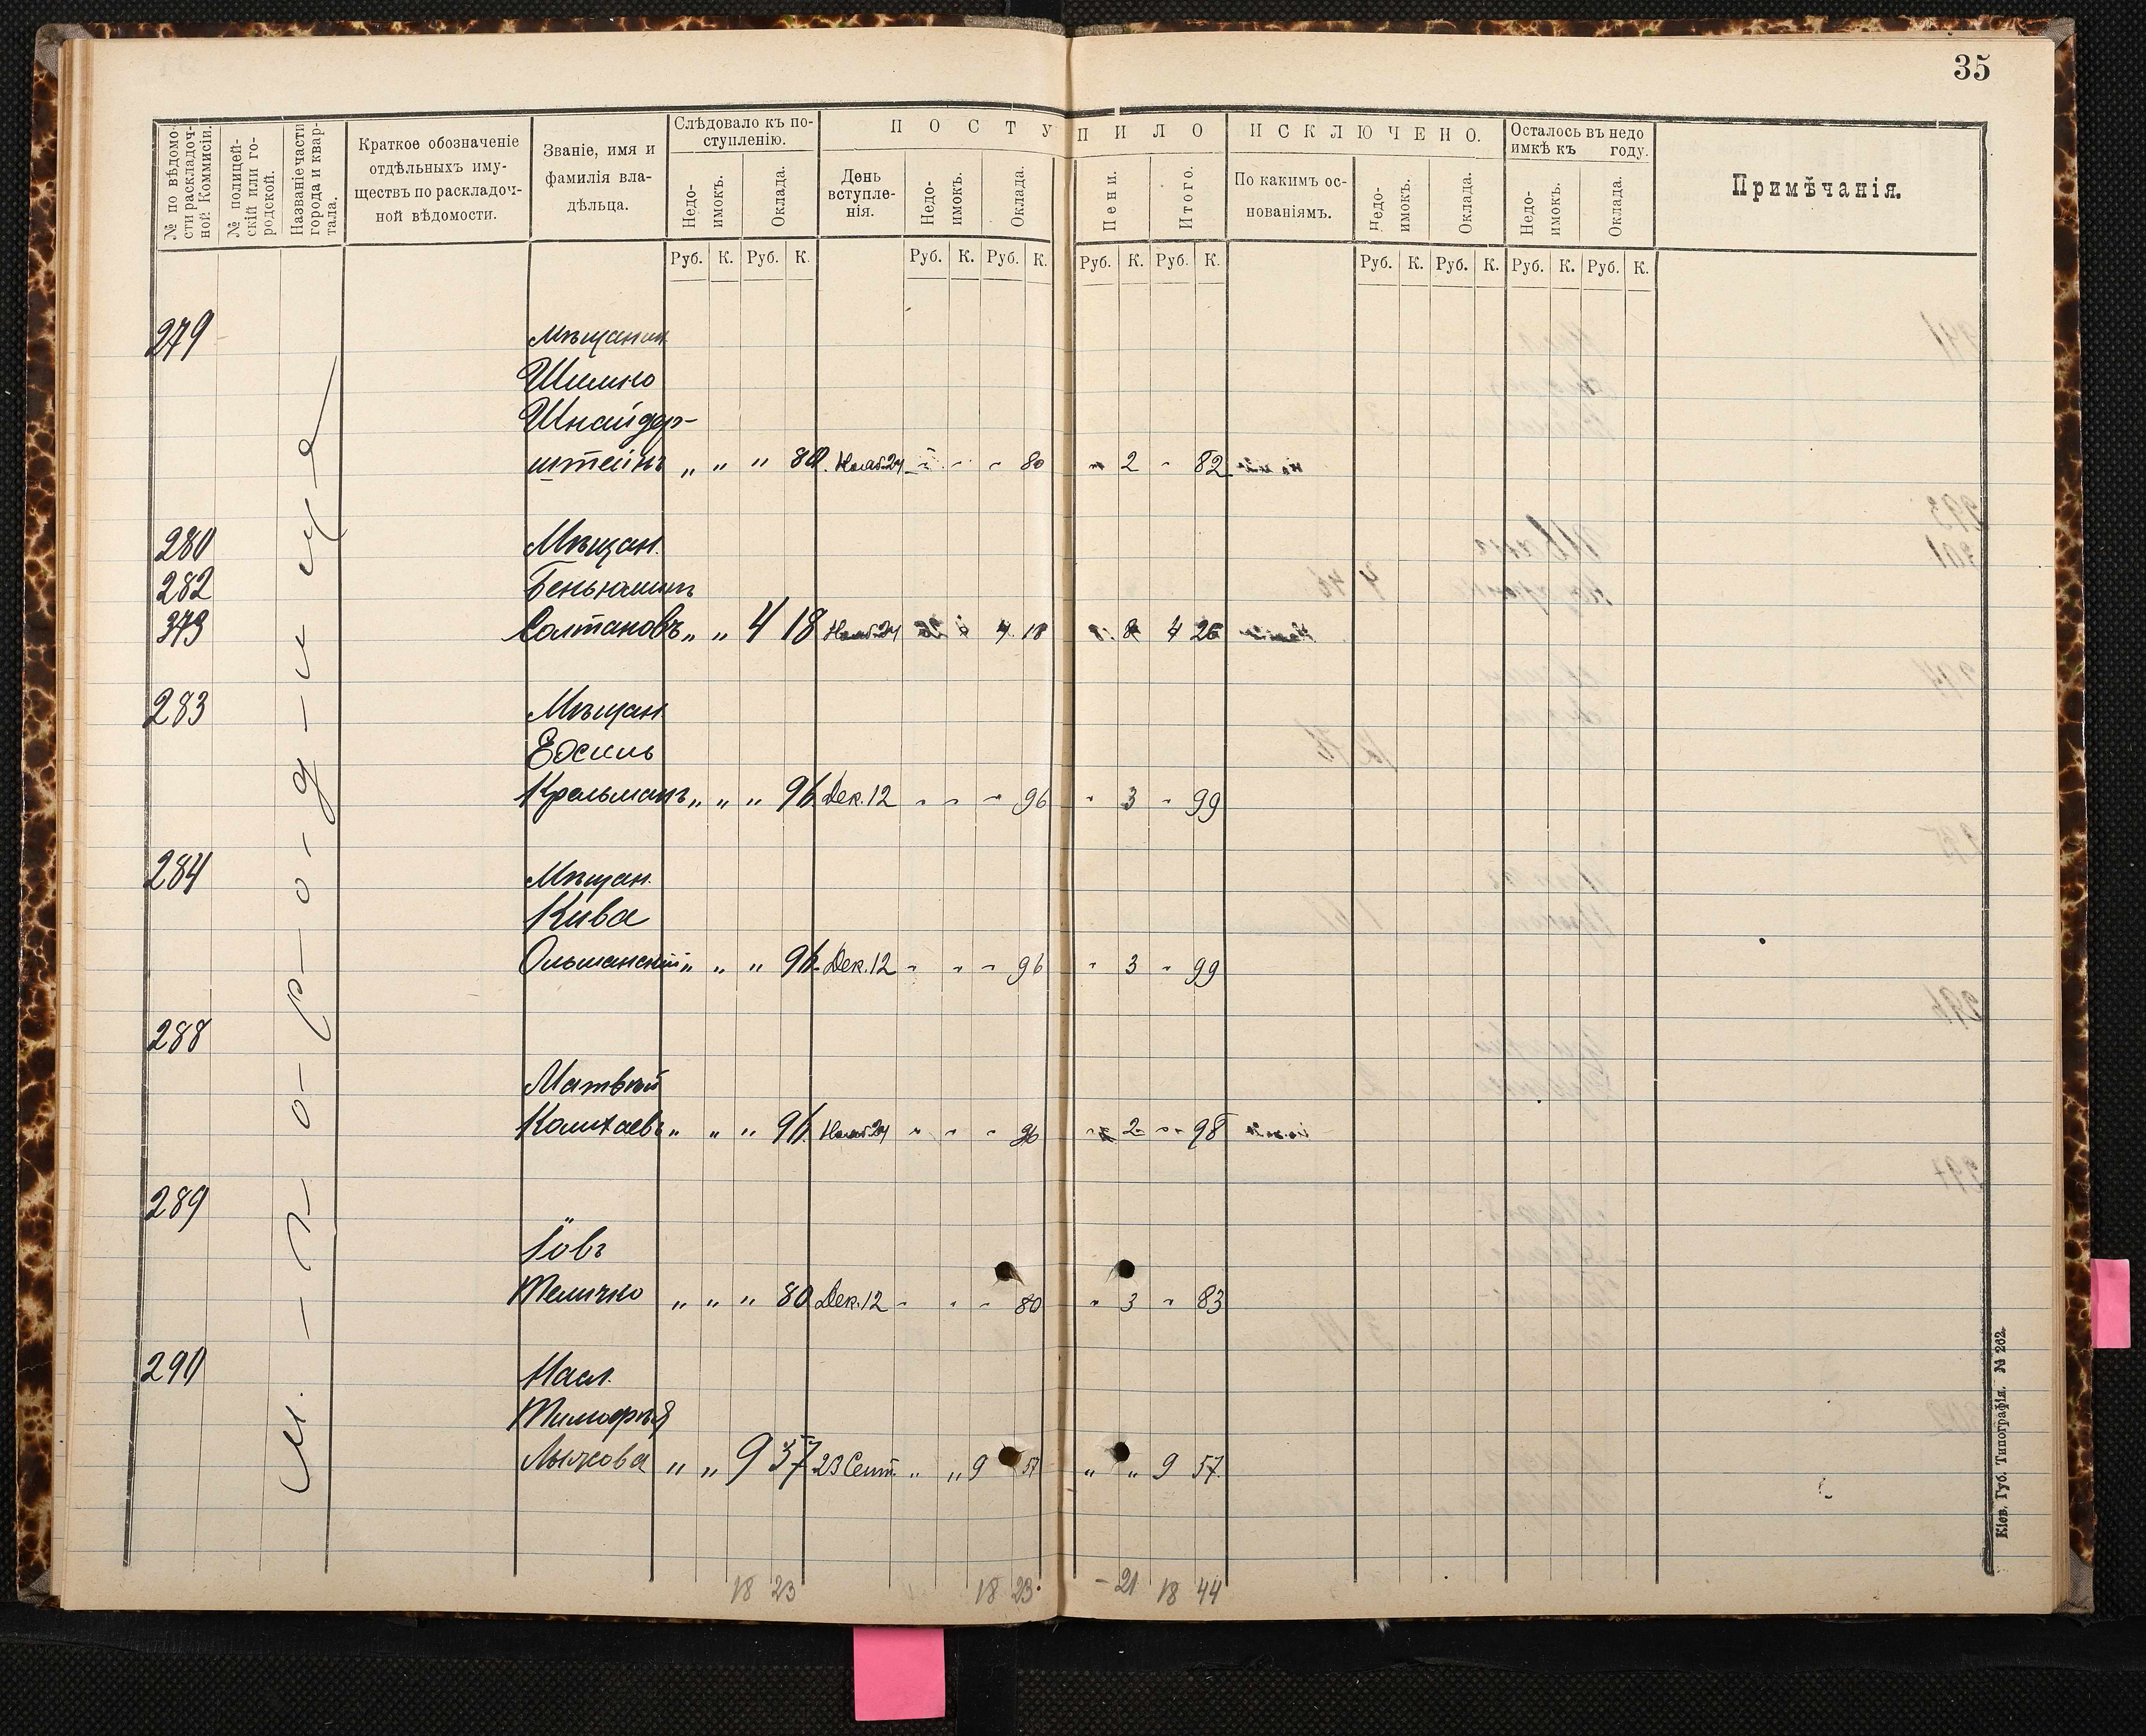 35
№ по вѣдомости раскладочной Коммисіи.
№ полицейскій или городской.
Названіе части города и квартала.
Краткое обозначеніе отдѣльныхъ имуществъ по раскладочной вѣдомости.
Званіе, имя и фамилія владѣльца.
Слѣдовало къ поступленію.
Недоимокъ.
Оклада.
ПОСТУПИЛО
День вступленія.
Недоимокъ.
Оклада.
Пени.
Итого.
ИСКЛЮЧЕНО.
По какимъ основаніямъ.
Недоимокъ.
Оклада.
Осталось въ недоимкѣ къ году.
Недоимокъ.
Оклада.
Примѣчанія.
Руб. К. Руб. К. Руб. К. Руб. К. Руб. К. Руб. К. Руб. К. Руб. К. Руб. К. Руб. К.
М. П-о-р-о-д-и-щ-е
279 Мѣщанин
Шимно
Шнайдер-
штейнъ „ „ „ 80 Нояб. 24 „ „ „ 80 „ 2 „ 82
280 Мѣщан.
282 Беньюминъ
373 Солтановъ „ „ 4 18 Нояб. 24 4 18 8 4 26
283 Мѣщан.
Ехсиль
Крельманъ „ „ „ 96 Дек. 12 „ „ „ 96 „ 3 „ 99
284 Мѣщан.
Кива
Ольшанскій „ „ „ 96 Дек. 12 „ „ „ 96 „ 3 „ 99
288
Матвѣй
Колихаевъ „ „ „ 96 Нояб. 24 „ „ „ 96 „ 2 „ 98
289
Іовъ
Теличко „ „ „ 80 Дек. 12 „ „ „ 80 „ 3 „ 83
290 Насл.
Тимофѣя
Лычкова „ „ 9 57 23 Сент. „ „ 9 57 „ „ 9 57
18 23 18 23 - 21 18 44
Кіев. Губ. Типографія. № 262.